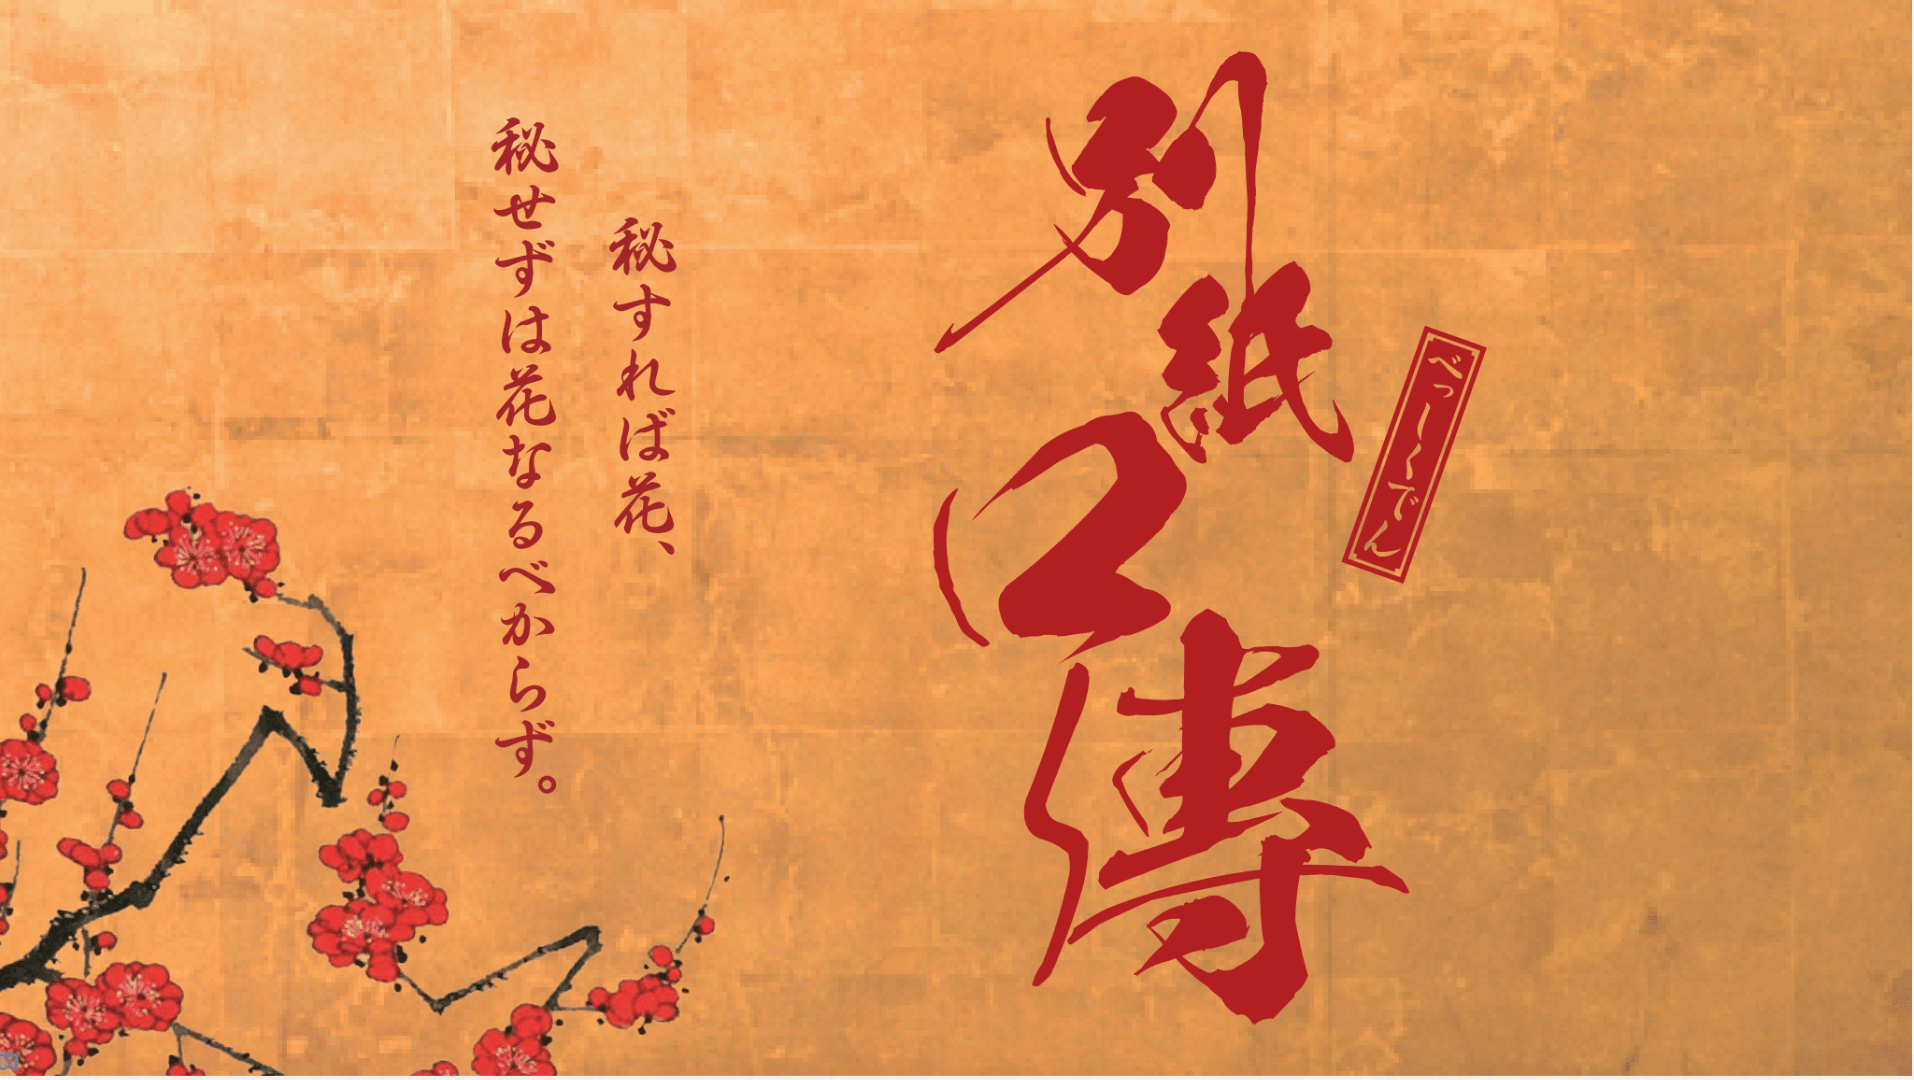 べっしくでん
別紙口傳
秘すれば花、
秘せずは花なるべからず。